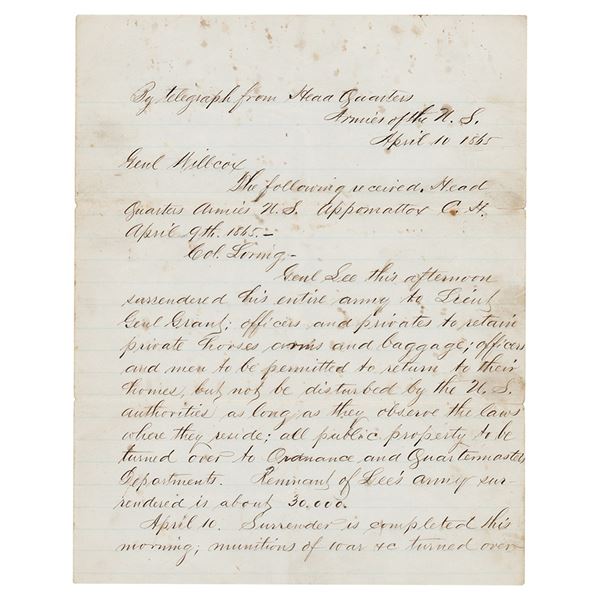 By telegraph from Head Quarters
Armies of the U. S.
April 10 1865
Genl Willcox
The following received. Head
Quarters Armies U. S. Appomattox C. H.
April 9th. 1865.-
Col. Loring-
Genl Lee this afternoon
surrendered his entire army to Lieut
Genl Grant; officers and privates to retain
private horses arms and baggage; officers
and men to be permitted to return to their
homes, but not be disturbed by the U. S.
authorities as long as they observe the laws
where they reside; all public property to be
turned over to Ordnance and Quartermasters
Departments. Remnant of Lee's army sur-
rendered is about 30.000.
April 10. Surrender is completed this
morning; munitions of war &c turned over